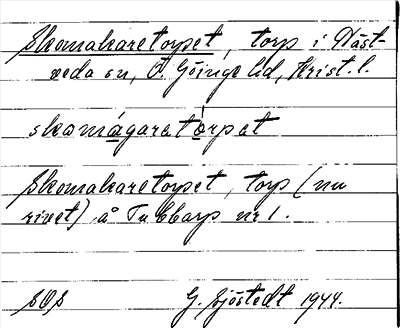 Skomakaretorpet, torp i Näst-
veda sn, Ö. Göinge hd, Krist. l.
skomágaretòrpet
Skomakaretorpet, torp (nu
rivet) å Tubbarp nr 1.
SOS G. Sjöstedt 1944.